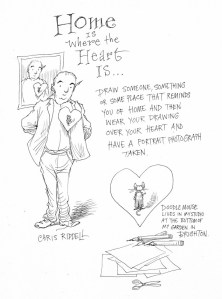 Home
is
where the
Heart
is...
DRAW SOMEONE, SOMETHING
OR SOME PLACE THAT REMINDS
YOU OF HOME AND THEN
WEAR YOUR DRAWING
OVER YOUR HEART AND
HAVE A PORTRAIT PHOTOGRAPH
TAKEN.
DOODLEMOUSE
LIVES IN
AT THE BOTTOM OF
MY GARDEN IN
BRIGHTON.
CHRIS RIDDELL